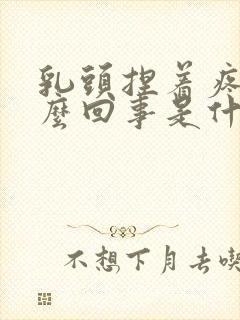 乳頭捏着疼
麼回事是什
不想下月去喫